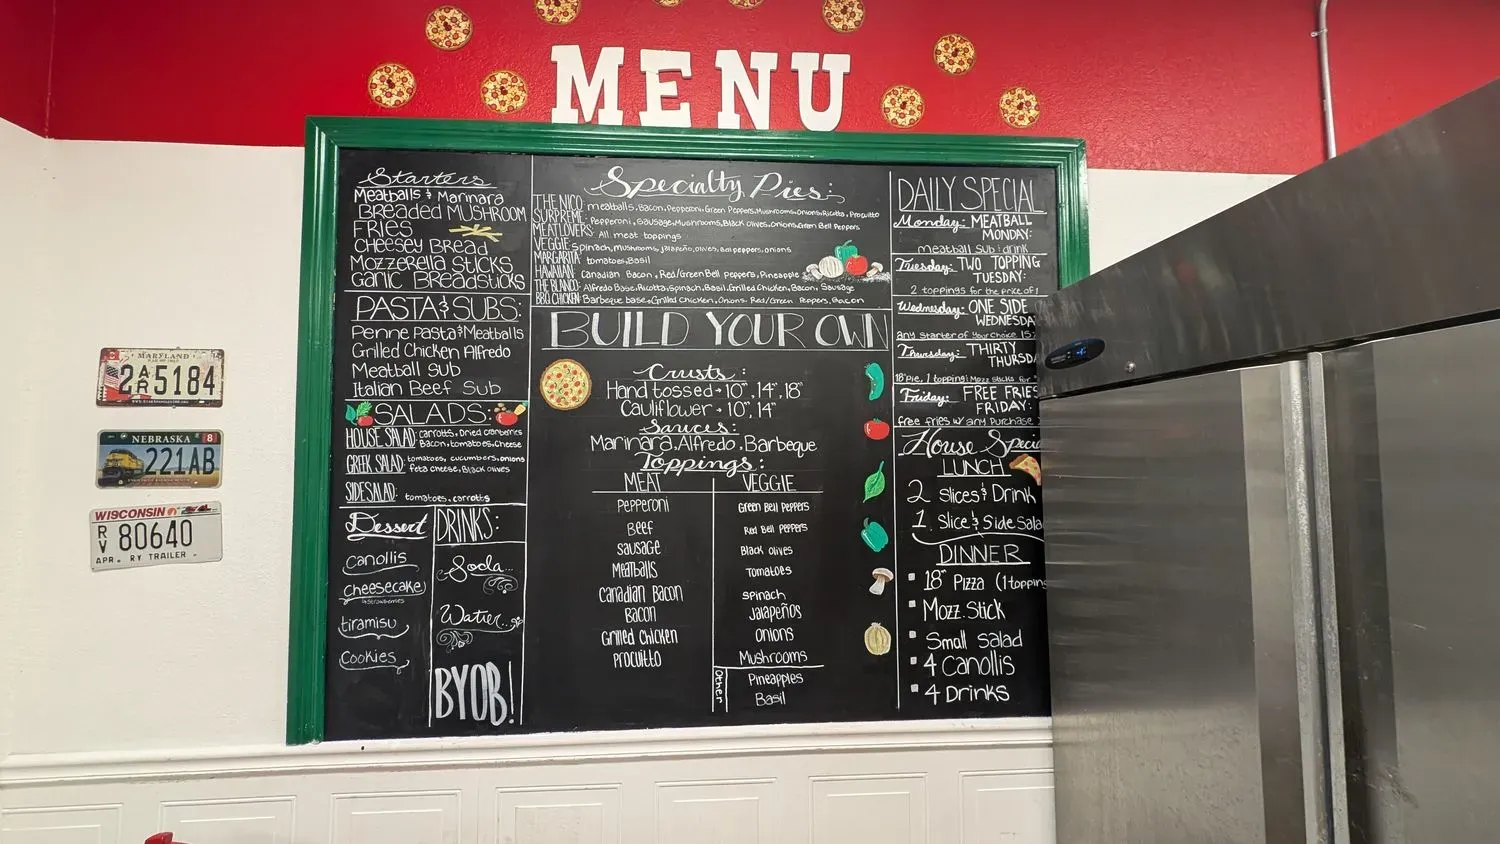 MENU
Starters
Meatballs & Marinara
Breaded MUSHROOM
FRIES
CHEESEY BREAD
Mozzerella Sticks
Garlic Breadsticks
PASTA & SUBS:
Penne Pasta & Meatballs
Grilled Chicken Alfredo
Meatball Sub
Italian Beef Sub
SALADS:
HOUSE SALAD: carrotts, Dried cranberries
Bacon, tomatoes, Cheese
GREEK SALAD: tomatoes, cucumbers, onions
feta cheese, Black olives
SIDE SALAD: tomatoes, carrotts
Dessert
Canollis
Cheesecake
tiramisu
Cookies
DRINKS:
Soda...
Water...
BYOB!
Specialty Pies:
THE NICO: meatballs, Bacon, Pepperoni, Green Peppers, Mushrooms, Onions, Ricotta, Procuitto
SURPREME: Pepperoni, Sausage, Mushrooms, Black olives, Onions, Green Bell Peppers
MEATLOVERS: All meat toppings
VEGGIE: Spinach, Mushrooms, jalapeño, olives, Bell peppers, onions
MARGARITA: tomatoes, Basil
HAWAIIAN: Canadian Bacon, Red/Green Bell peppers, Pineapple
THE BLANCO: Alfredo Base, Ricotta, Spinach, Basil, Grilled Chicken, Bacon, Sausage
BBQ CHICKEN: Barbeque base, Grilled Chicken, Onions, Red/Green Peppers, Bacon
BUILD YOUR OWN
Crusts:
Hand tossed → 10", 14", 18"
Cauliflower → 10", 14"
Sauces:
Marinara, Alfredo, Barbeque
Toppings:
MEAT
Pepperoni
Beef
Sausage
Meatballs
Canadian Bacon
Bacon
Grilled Chicken
Procuitto
VEGGIE
Green Bell Peppers
Red Bell Peppers
Black olives
Tomatoes
Spinach
Jalapeños
Onions
Mushrooms
Other
Pineapples
Basil
DAILY SPECIAL
Monday: MEATBALL
MONDAY:
meatball sub & drink
Tuesday: TWO TOPPING
TUESDAY:
2 toppings for the price of 1
Wednesday: ONE SIDE
WEDNESDA
any starter of your choice
Thursday: THIRTY
THURSDA
18" pie, 1 topping & Mozz Sticks for
Friday: FREE FRIES
FRIDAY:
free fries w/ any purchase
House Specia
LUNCH
2 Slices & Drink
1 Slice & Side Sala
DINNER
18" Pizza (1 topping
Mozz. Stick
Small salad
4 Canollis
4 Drinks
MARYLAND
2AR5184
NEBRASKA 8
221AB
WISCONSIN
RV 80640
APR. RV TRAILER